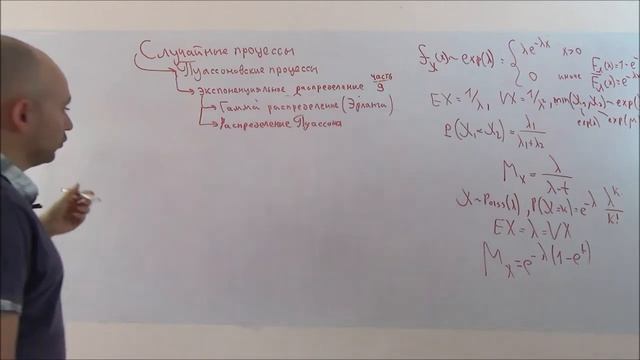 Случайные процессы
Пуассоновские процессы
Экспоненциальное распределение часть 9
Гамма распределение (Эрланга)
Распределение Пуассона
f_X(x) ~ exp(λ) = { λe^{-λx} x>0
0 иначе
F_X(x)=1-e
F̄_X(x)=e
EX = 1/λ, VX = 1/λ², min(X₁,X₂) ~ exp(
exp(λ) exp(μ)
P(X₁<X₂) = λ₁/(λ₁+λ₂)
M_X = λ/(λ-t)
X ~ Poiss(λ), P(X=k) = e^{-λ} λ^k/k!
EX = λ = VX
M_X = e^{-λ(1-e^t)}